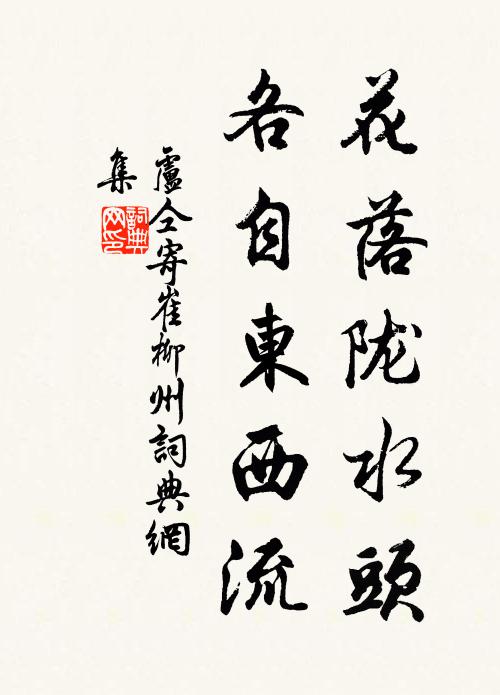 花落陇水頭
各自東西流
盧仝寄崔柳州詞典網
集
詞典
网印